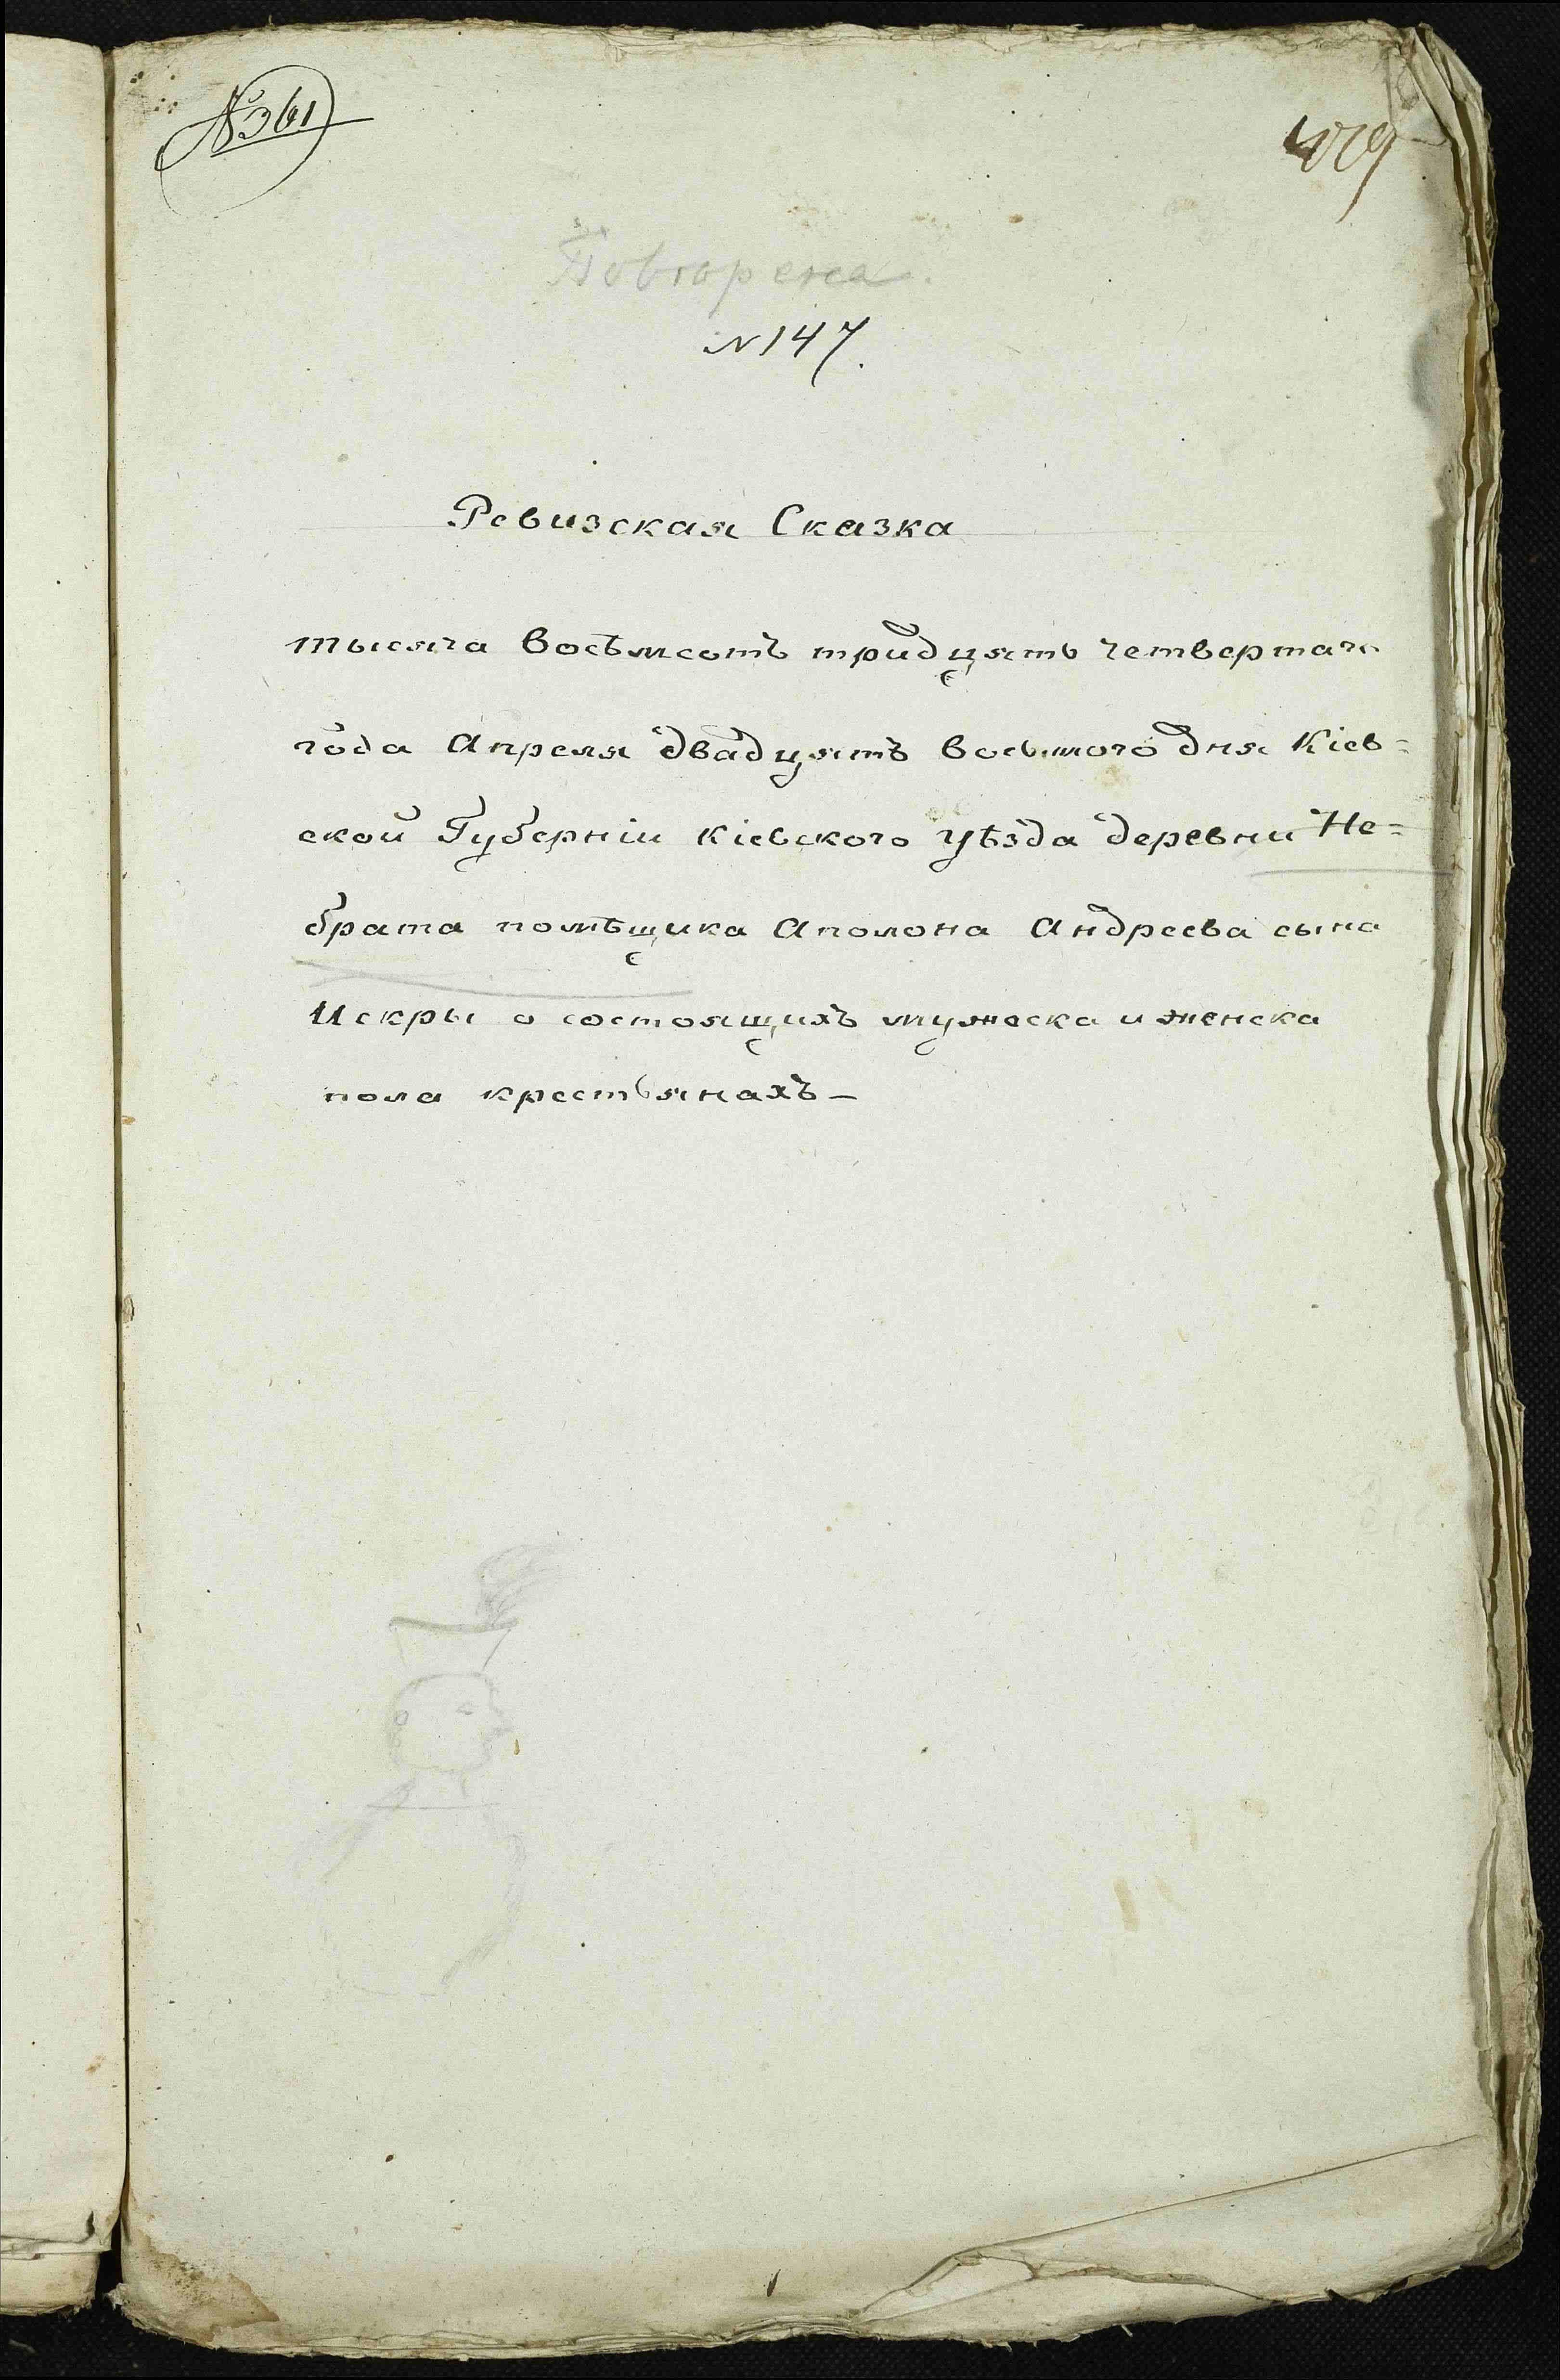 №361
Повторена.
N 147.
Ревизская Сказка
тысяча восѣмсотъ тридцять четвертаго
года Апреля двадцять восьмого дня Кіев=
ской Губерніи Кіевского уѣзда деревни Не=
брата помѣщика Аполона Андреева сына
Искры о состоящихъ мужеска и женска
пола крестьянахъ—